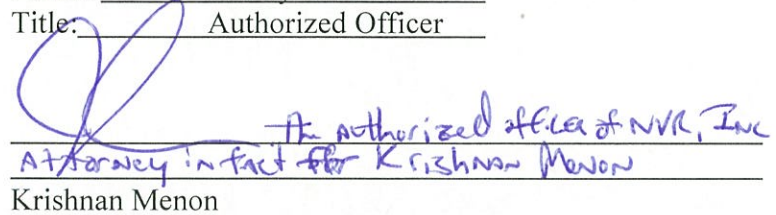 Title: Authorized Officer
An Authorized officer of NVR, Inc
Attorney in fact for Krishnan Menon
Krishnan Menon